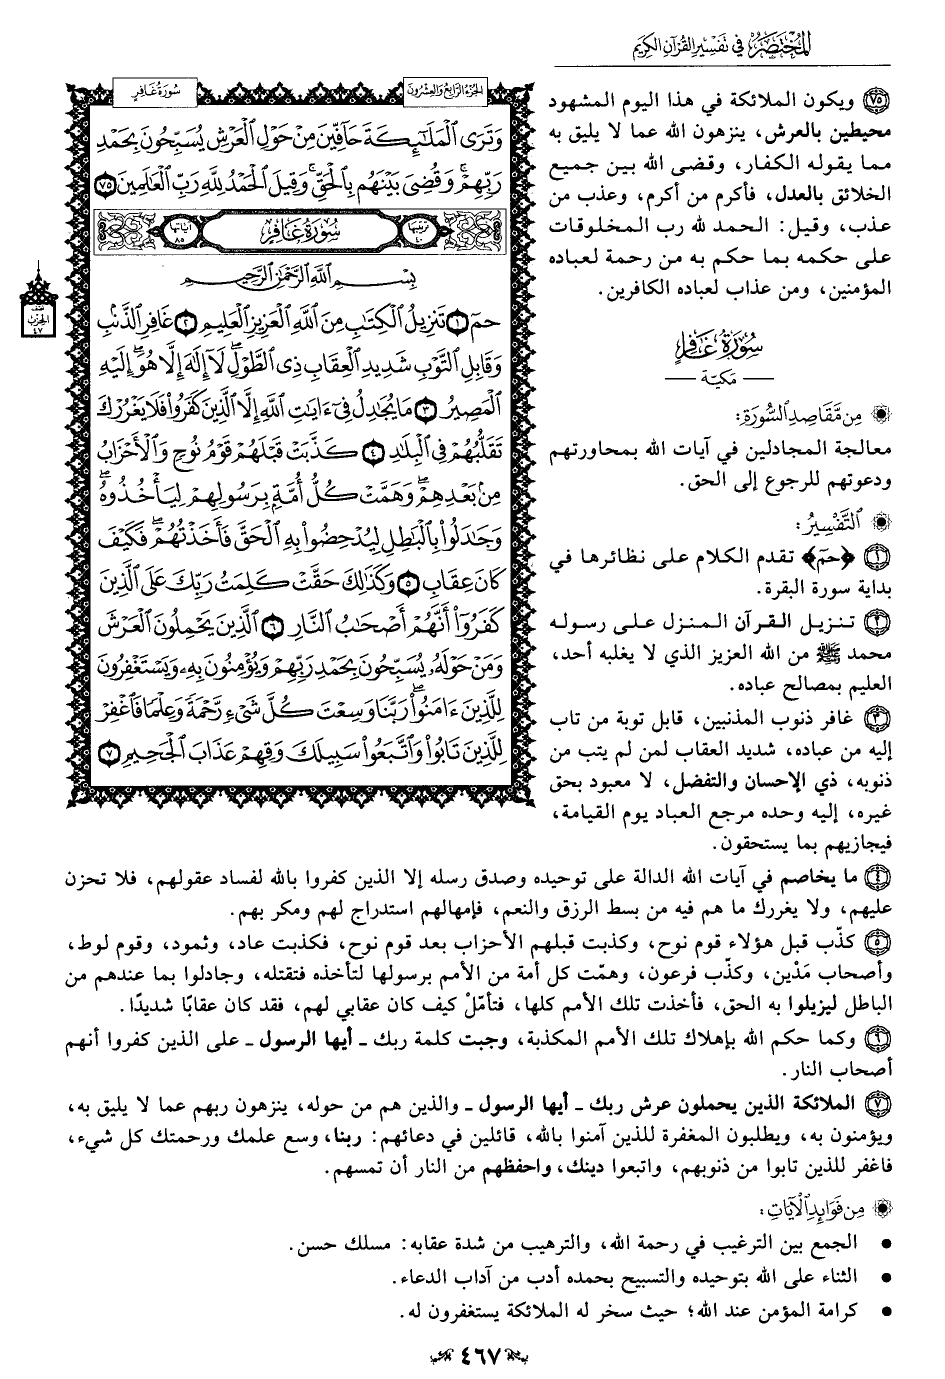 المُخْتَصَرُ فِي تَفْسِيرِ القُرْآنِ الكَرِيمِ
٧٥ ويكون الملائكة في هذا اليوم المشهود
محيطين بالعرش، ينزهون الله عما لا يليق به
مما يقوله الكفار، وقضى الله بين جميع
الخلائق بالعدل، فأكرم من أكرم، وعذب من
عذب، وقيل: الحمد لله رب المخلوقات
على حكمه بما حكم به من رحمة لعباده
المؤمنين، ومن عذاب لعباده الكافرين.
سُورَةُ غَافِرٍ
— مَكيّة —
مِن مَّقَاصِدِ السُّورَةِ:
معالجة المجادلين في آيات الله بمحاورتهم
ودعوتهم للرجوع إلى الحق.
التَّفْسِيرُ:
١ ﴿حمٓ﴾ تقدم الكلام على نظائرها في
بداية سورة البقرة.
٢ تنزيل القرآن المنزل على رسوله
محمد ﷺ من الله العزيز الذي لا يغلبه أحد،
العليم بمصالح عباده.
٣ غافر ذنوب المذنبين، قابل توبة من تاب
إليه من عباده، شديد العقاب لمن لم يتب من
ذنوبه، ذي الإحسان والتفضل، لا معبود بحق
غيره، إليه وحده مرجع العباد يوم القيامة،
فيجازيهم بما يستحقون.
الجُزْءُ الرَّابِعُ وَالعِشْرُونَ
سُورَةُ غَافِرٍ
وَتَرَى ٱلْمَلَٰٓئِكَةَ حَآفِّينَ مِنْ حَوْلِ ٱلْعَرْشِ يُسَبِّحُونَ بِحَمْدِ
رَبِّهِمْ ۖ وَقُضِىَ بَيْنَهُم بِٱلْحَقِّ وَقِيلَ ٱلْحَمْدُ لِلَّهِ رَبِّ ٱلْعَٰلَمِينَ ٧٥
ترتيبها ٤٠ سُورَةُ غَافِرٍ آياتها ٨٥
بِسْمِ ٱللَّهِ ٱلرَّحْمَٰنِ ٱلرَّحِيمِ
حمٓ ١ تَنزِيلُ ٱلْكِتَٰبِ مِنَ ٱللَّهِ ٱلْعَزِيزِ ٱلْعَلِيمِ ٢ غَافِرِ ٱلذَّنۢبِ
وَقَابِلِ ٱلتَّوْبِ شَدِيدِ ٱلْعِقَابِ ذِى ٱلطَّوْلِ ۖ لَآ إِلَٰهَ إِلَّا هُوَ ۖ إِلَيْهِ
ٱلْمَصِيرُ ٣ مَا يُجَٰدِلُ فِىٓ ءَايَٰتِ ٱللَّهِ إِلَّا ٱلَّذِينَ كَفَرُوا۟ فَلَا يَغْرُرْكَ
تَقَلُّبُهُمْ فِى ٱلْبِلَٰدِ ٤ كَذَّبَتْ قَبْلَهُمْ قَوْمُ نُوحٍ وَٱلْأَحْزَابُ
مِنۢ بَعْدِهِمْ ۖ وَهَمَّتْ كُلُّ أُمَّةٍۭ بِرَسُولِهِمْ لِيَأْخُذُوهُ ۖ
وَجَٰدَلُوا۟ بِٱلْبَٰطِلِ لِيُدْحِضُوا۟ بِهِ ٱلْحَقَّ فَأَخَذْتُهُمْ ۖ فَكَيْفَ
كَانَ عِقَابِ ٥ وَكَذَٰلِكَ حَقَّتْ كَلِمَتُ رَبِّكَ عَلَى ٱلَّذِينَ
كَفَرُوٓا۟ أَنَّهُمْ أَصْحَٰبُ ٱلنَّارِ ٦ ٱلَّذِينَ يَحْمِلُونَ ٱلْعَرْشَ
وَمَنْ حَوْلَهُۥ يُسَبِّحُونَ بِحَمْدِ رَبِّهِمْ وَيُؤْمِنُونَ بِهِۦ وَيَسْتَغْفِرُونَ
لِلَّذِينَ ءَامَنُوا۟ ۖ رَبَّنَا وَسِعْتَ كُلَّ شَىْءٍ رَّحْمَةً وَعِلْمًا فَٱغْفِرْ
لِلَّذِينَ تَابُوا۟ وَٱتَّبَعُوا۟ سَبِيلَكَ وَقِهِمْ عَذَابَ ٱلْجَحِيمِ ٧
نصف
الحزب
٤٧
٤ ما يخاصم في آيات الله الدالة على توحيده وصدق رسله إلا الذين كفروا بالله لفساد عقولهم، فلا تحزن
عليهم، ولا يغررك ما هم فيه من بسط الرزق والنعم، فإمهالهم استدراج لهم ومكر بهم.
٥ كذّب قبل هؤلاء قوم نوح، وكذبت قبلهم الأحزاب بعد قوم نوح، فكذبت عاد، وثمود، وقوم لوط،
وأصحاب مَدْين، وكذّب فرعون، وهمّت كل أمة من الأمم برسولها لتأخذه فتقتله، وجادلوا بما عندهم من
الباطل ليزيلوا به الحق، فأخذت تلك الأمم كلها، فتأمّلْ كيف كان عقابي لهم، فقد كان عقابًا شديدًا.
٦ وكما حكم الله بإهلاك تلك الأمم المكذبة، وجبت كلمة ربك ـ أيها الرسول ـ على الذين كفروا أنهم
أصحاب النار.
٧ الملائكة الذين يحملون عرش ربك ـ أيها الرسول ـ والذين هم من حوله، ينزهون ربهم عما لا يليق به،
ويؤمنون به، ويطلبون المغفرة للذين آمنوا بالله، قائلين في دعائهم: ربنا، وسع علمك ورحمتك كل شيء،
فاغفر للذين تابوا من ذنوبهم، واتبعوا دينك، واحفظهم من النار أن تمسهم.
مِن فَوَائِدِ الآيَاتِ:
• الجمع بين الترغيب في رحمة الله، والترهيب من شدة عقابه: مسلك حسن.
• الثناء على الله بتوحيده والتسبيح بحمده أدب من آداب الدعاء.
• كرامة المؤمن عند الله؛ حيث سخر له الملائكة يستغفرون له.
٤٦٧